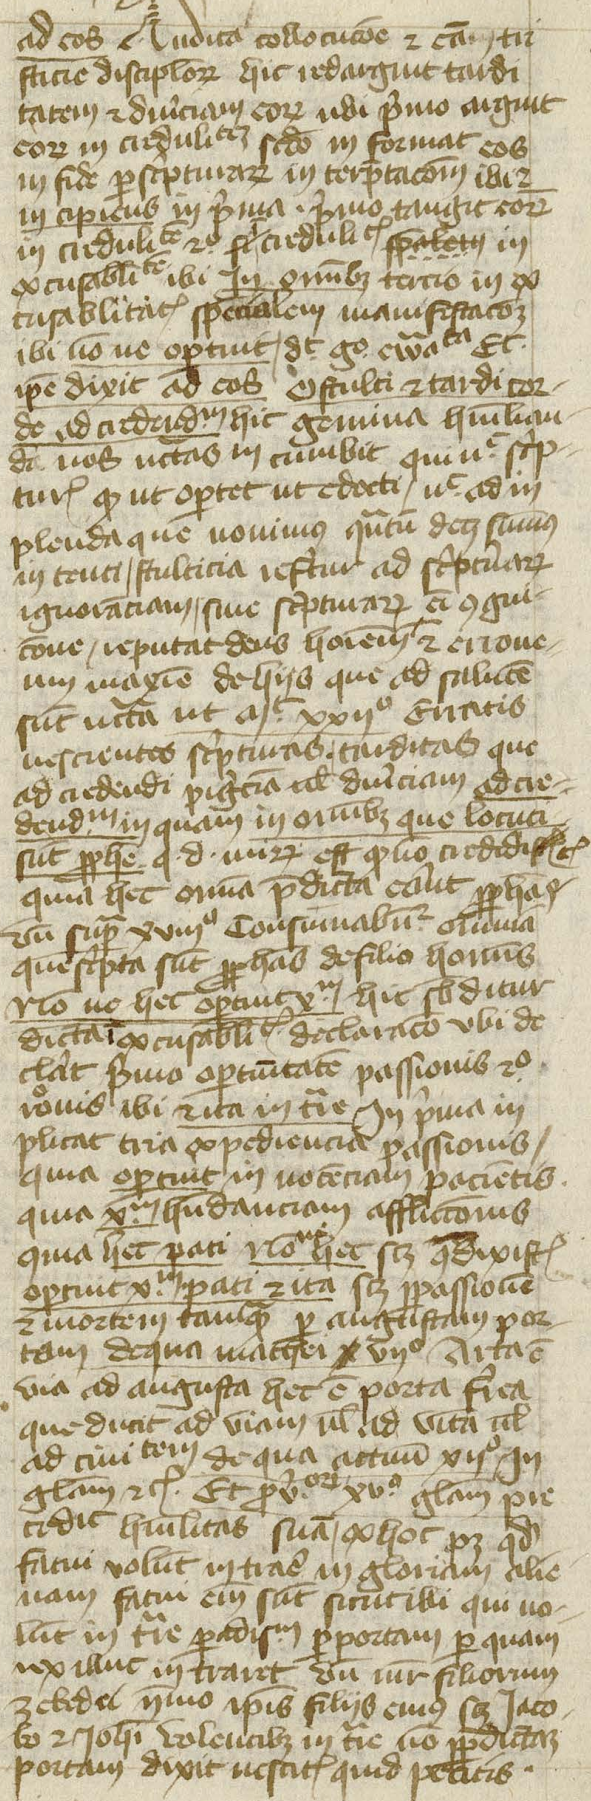 ad eos Audita collocucõe ⁊ cãm tri
sticie disciploꝝ hic redarguit tardi
tatem ⁊ duriciam eoꝝ ubi p̃mo arguit
eoꝝ in credulitez scdo in format eos
in fide p scpturaꝝ in terptacõm ibi ⁊
in cipiens in p̃ma · p̃mo tangit eoꝝ
in credulite ⁊º credulitꝭ in
excusablite ibi In omĩbꝫ tercio in ex
cusablitatꝭ specialem manifestacõꝫ
ibi nõ ne oportuit dt g° Et
ipe dixit ad eos O stulti ⁊ tardi cor-
de ad credendm hic gemina humilian
da nos in cumbit qui nc scrip-
turꝭ ut oportet ut edocti nc ad in
plenda que novimus qntũ simus
in tenti stulticia refertur ad scpturaꝝ
ignoranciam sine scpturaꝝ ei ꝯgni-
cõne reputat deus hoiem ⁊ errone-
um maxie de hijs que ad salutẽ
sũt ut xxijº Erratis
nescientes scpturas tarditas que
ad credendi pigriciã ul duriciam ad cre-
dendm in quam in omĩbꝫ que locuti
sũt pphe q . d . mirꝝ est quo credidistꝭ
quia hec omia p̃dicta erãt pphãꝝ
Vñ sup xviijº Consumabũtr omnia
que scpta sũt pphas de filio homĩs
Nõ ne hec oportuit xm hic sbditur
dicta excusablitꝭ declaracõ ubi de
clãt p̃mo oportũitatẽ passionis ⁊º
rõnis ibi ⁊ ita in tre In p̃ma in
plicat tria expedienciã passionis
quia oportuit in nocenciam pacientis
quia xm hũdanciam afflictõnis
quia hec pati Nõne hec sꝫ q̃ dixistꝭ
oportuit xm pati ⁊ ita sꝫ p passionẽ
⁊ mortem tamq̃ p angustam por-
tam de qua mathei vijº Arta ẽ
via ad angusta hec ẽ porta ferea
que ducit ad viam ul ad vitã ul
ad civitem de qua actuũ xijº In
glam ⁊cꝭ. Et pv̉orꝝ xvº glam pre
cedit humilitas suã ex hoc pꝫ qd
fatui volũt intrare in gloriam alie-
nam fatui em sũt sicut illi qui vo-
lũt in tre padism p portam p quam
rex illuc intraret Vñ mr filiorum
zebedei ymo ipis filijs eius sꝫ Jaco-
bo ⁊ Johi volentibꝫ in tre nõ p p̃dictaꝫ
portam dixit nescitꝭ quid petatis ·